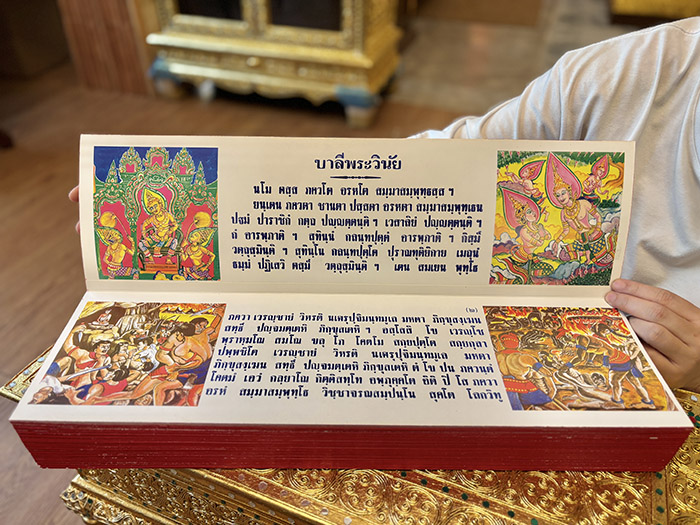 บาลีพระวินัย
นโม ตสฺส ภควโต อรหโต สมฺมาสมฺพุทฺธสฺส ฯ
ยนฺเตน ภควตา ชานตา ปสฺสตา อรหตา สมฺมาสมฺพุทฺเธน
ปฐมํ ปาราชิกํ กตฺถ ปญฺญตฺตนฺติ ฯ เวสาลิยํ ปญฺญตฺตนฺติ ฯ
กํ อารพฺภาติ ฯ สุทินฺนํ กลนฺทปุตฺตํ อารพฺภาติ ฯ กิสฺมึ
วตฺถุสฺมินฺติ ฯ สุทินฺโน กลนฺทปุตฺโต ปุราณทุติยิกาย เมถุนํ
ธมฺมํ ปฏิเสวิ ตสฺมึ วตฺถุสฺมินฺติ ฯ เตน สมเยน พุทฺโธ
(๒)
ภควา เวรญฺชายํ วิหรติ นเฬรุปุจิมนฺทมูเล มหตา ภิกฺขุสงฺเฆน
สทฺธึ ปญฺจมตฺเตหิ ภิกฺขุสเตหิ ฯ อสฺโสสิ โข เวรญฺโช
พฺราหฺมโณ สมโณ ขลุ โภ โคตโม สกฺยปุตฺโต สกฺยกุลา
ปพฺพชิโต เวรญฺชายํ วิหรติ นเฬรุปุจิมนฺทมูเล มหตา
ภิกฺขุสงฺเฆน สทฺธึ ปญฺจมตฺเตหิ ภิกฺขุสเตหิ ตํ โข ปน ภวนฺตํ
โคตมํ เอวํ กลฺยาโณ กิตฺติสทฺโท อพฺภุคฺคโต อิติ ปิ โส ภควา
อรหํ สมฺมาสมฺพุทฺโธ วิชฺชาจรณสมฺปนฺโน สุคโต โลกวิทู